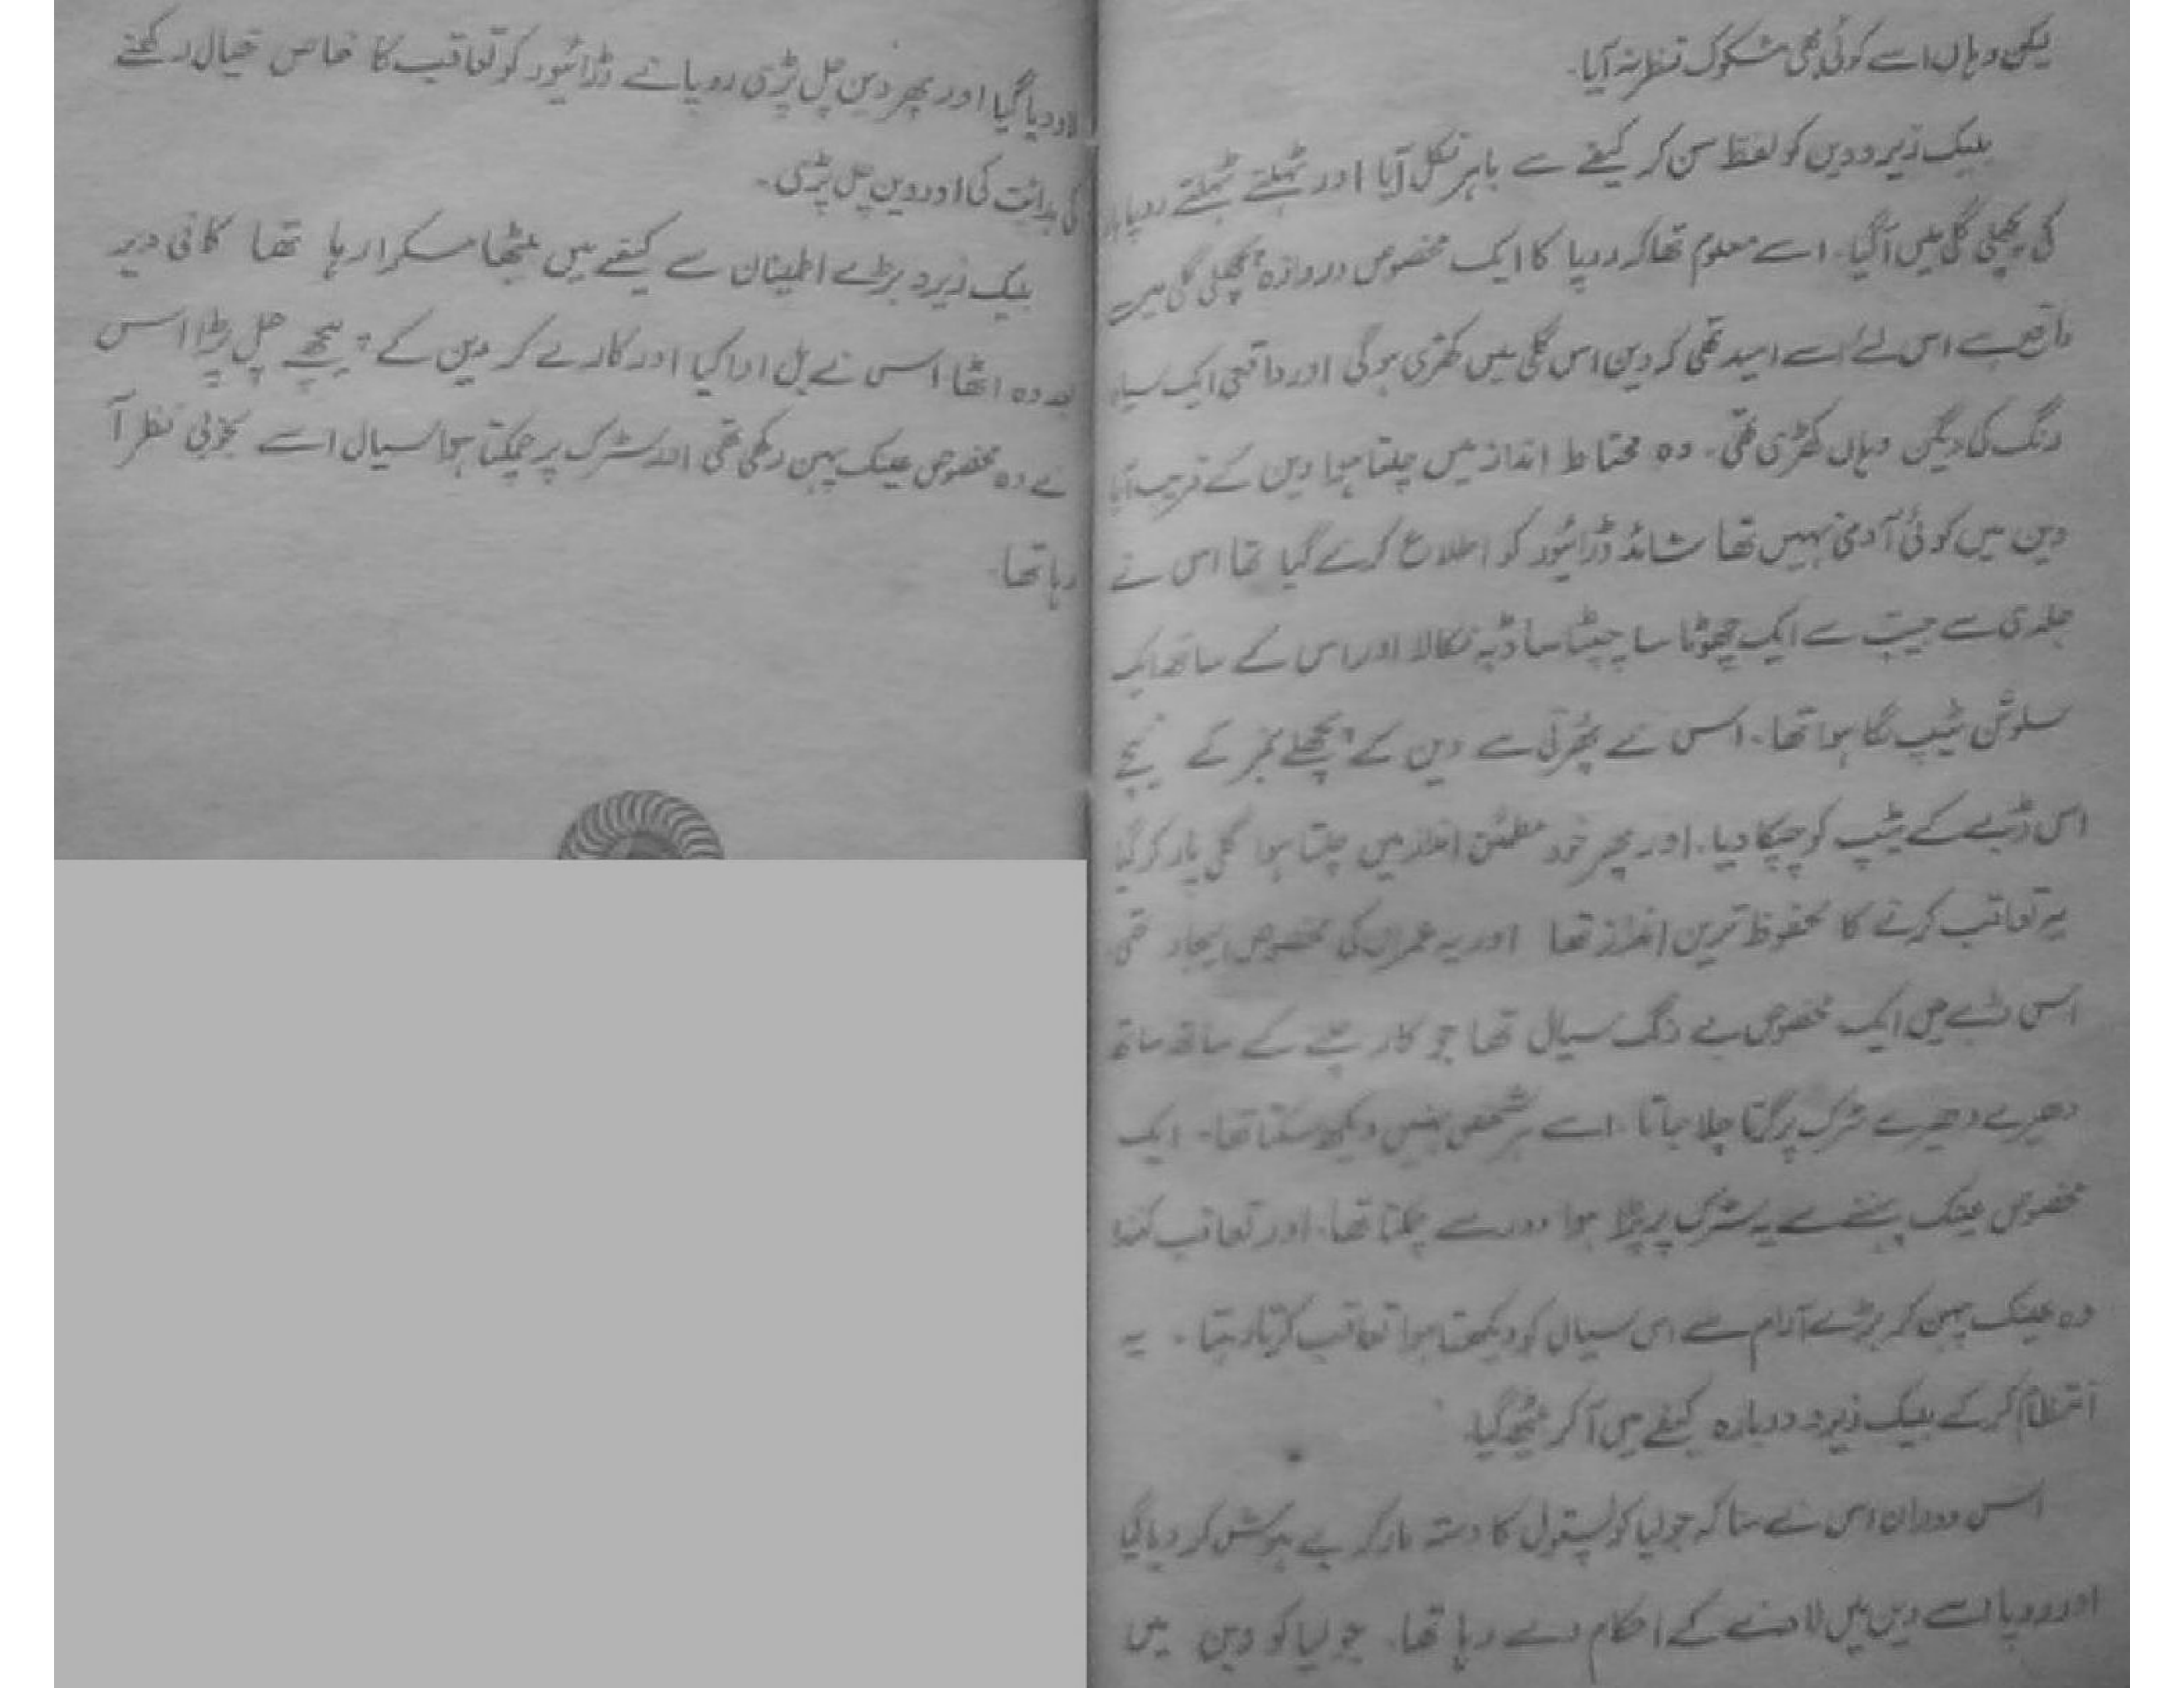 لیکن وہاں اسے کوئی بھی مشکوک نظر نہ آیا۔
بلیک زیرو دین کو لفظ سن کر کیفے سے باہر نکل آیا اور ٹہلتے ٹہلتے روپا بار
کی پچھلی گلی میں آگیا۔ اسے معلوم تھا کہ روپا کا ایک مخصوص دروازہ پچھلی گلی میں
واقع ہے اس لئے اسے امید تھی کہ دین اس گلی میں کھڑی ہوگی اور واقعی ایک سیاہ
رنگ کی ویگن وہاں کھڑی تھی۔ وہ محتاط انداز میں چلتا ہوا دین کے قریب آیا
دین میں کوئی آدمی نہیں تھا شائد ڈرائیور کو اطلاع کرنے گیا تھا اس نے
جلدی سے جیب سے ایک چھوٹا سا چپٹا سا ڈبہ نکالا اور اس کے ساتھ ایک
سلوشن ٹیپ لگا ہوا تھا۔ اس نے پھرتی سے دین کے پچھلے بمپر کے نیچے
اس ڈبے کے ٹیپ کو چپکا دیا۔ اور پھر خود مطمئن انداز میں چلتا ہوا گلی پار کر گیا
یہ تعاقب کرنے کا محفوظ ترین انداز تھا اور یہ عمران کی مخصوص ایجاد تھی
اس ڈبے میں ایک مخصوص بے رنگ سیال تھا جو کار چلنے کے ساتھ ساتھ
دھیرے دھیرے سڑک پر گرتا چلا جاتا اسے ہر شخص نہیں دیکھ سکتا تھا۔ ایک
مخصوص عینک پہننے سے یہ سڑک پر پڑا ہوا دور سے چمکتا تھا۔ اور تعاقب کنندہ
وہ عینک پہن کر بڑے آرام سے اس سیال کو دیکھتا ہوا تعاقب کرتا رہتا۔ یہ
انتظام کر کے بلیک زیرو دوبارہ کیفے میں آ کر بیٹھ گیا۔
اس دوران اس نے سنا کہ جولیا کو پستول کا دستہ مار کر بے ہوش کر دیا گیا
اور روپا اسے دین میں لادنے کے احکام دے رہا تھا۔ جولیا کو دین میں
لاد دیا گیا اور پھر دین چل پڑی روپا نے ڈرائیور کو تعاقب کا خاص خیال رکھنے
کی ہدائت کی اور دین چل پڑی۔
بلیک زیرو بڑے اطمینان سے کیفے میں بیٹھا مسکرا رہا تھا کافی دیر
بعد وہ اٹھا اس نے بل ادا کیا اور کار لے کر دین کے پیچھے چل پڑا اس
نے وہ مخصوص عینک پہن رکھی تھی اور سڑک پر چمکتا ہوا سیال اسے بخوبی نظر آ
رہا تھا۔